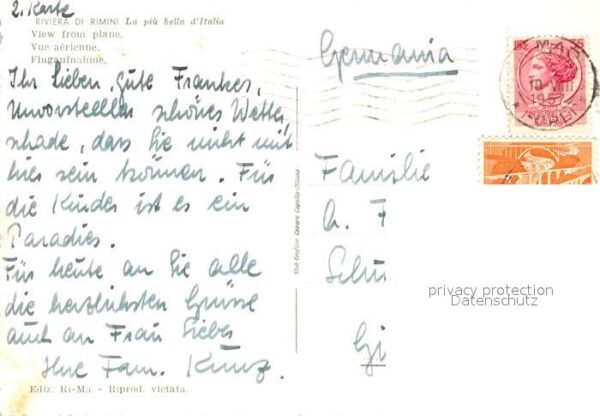 2. Karte
RIVIERA DI RIMINI La più bella d'Italia
View from plane.
Vue aérienne.
Flugaufnahme.
Ihr lieben, gute Frankes,
Unvorstellbar schönes Wetter,
schade, dass Sie nicht mit
hier sein können. Für
die Kinder ist es ein
Paradies.
Für heute an Sie alle
die herzlichsten Grüsse
auch an Frau Liebes
Ihre Fam. Kunz.
Ediz. Ri-Ma - Riprod. vietata.
Germania
MAR
10 VIII
195
Familie
A. F
Schu
Gi
privacy protection
Datenschutz